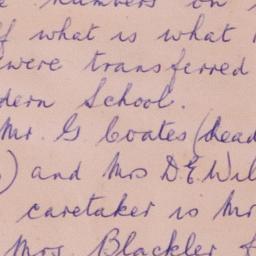 numbers on
what is what
were transferred
School.
Mr. G Coates (head
) and Mrs D.E. Wil
caretaker is Mr
Mrs Blackler